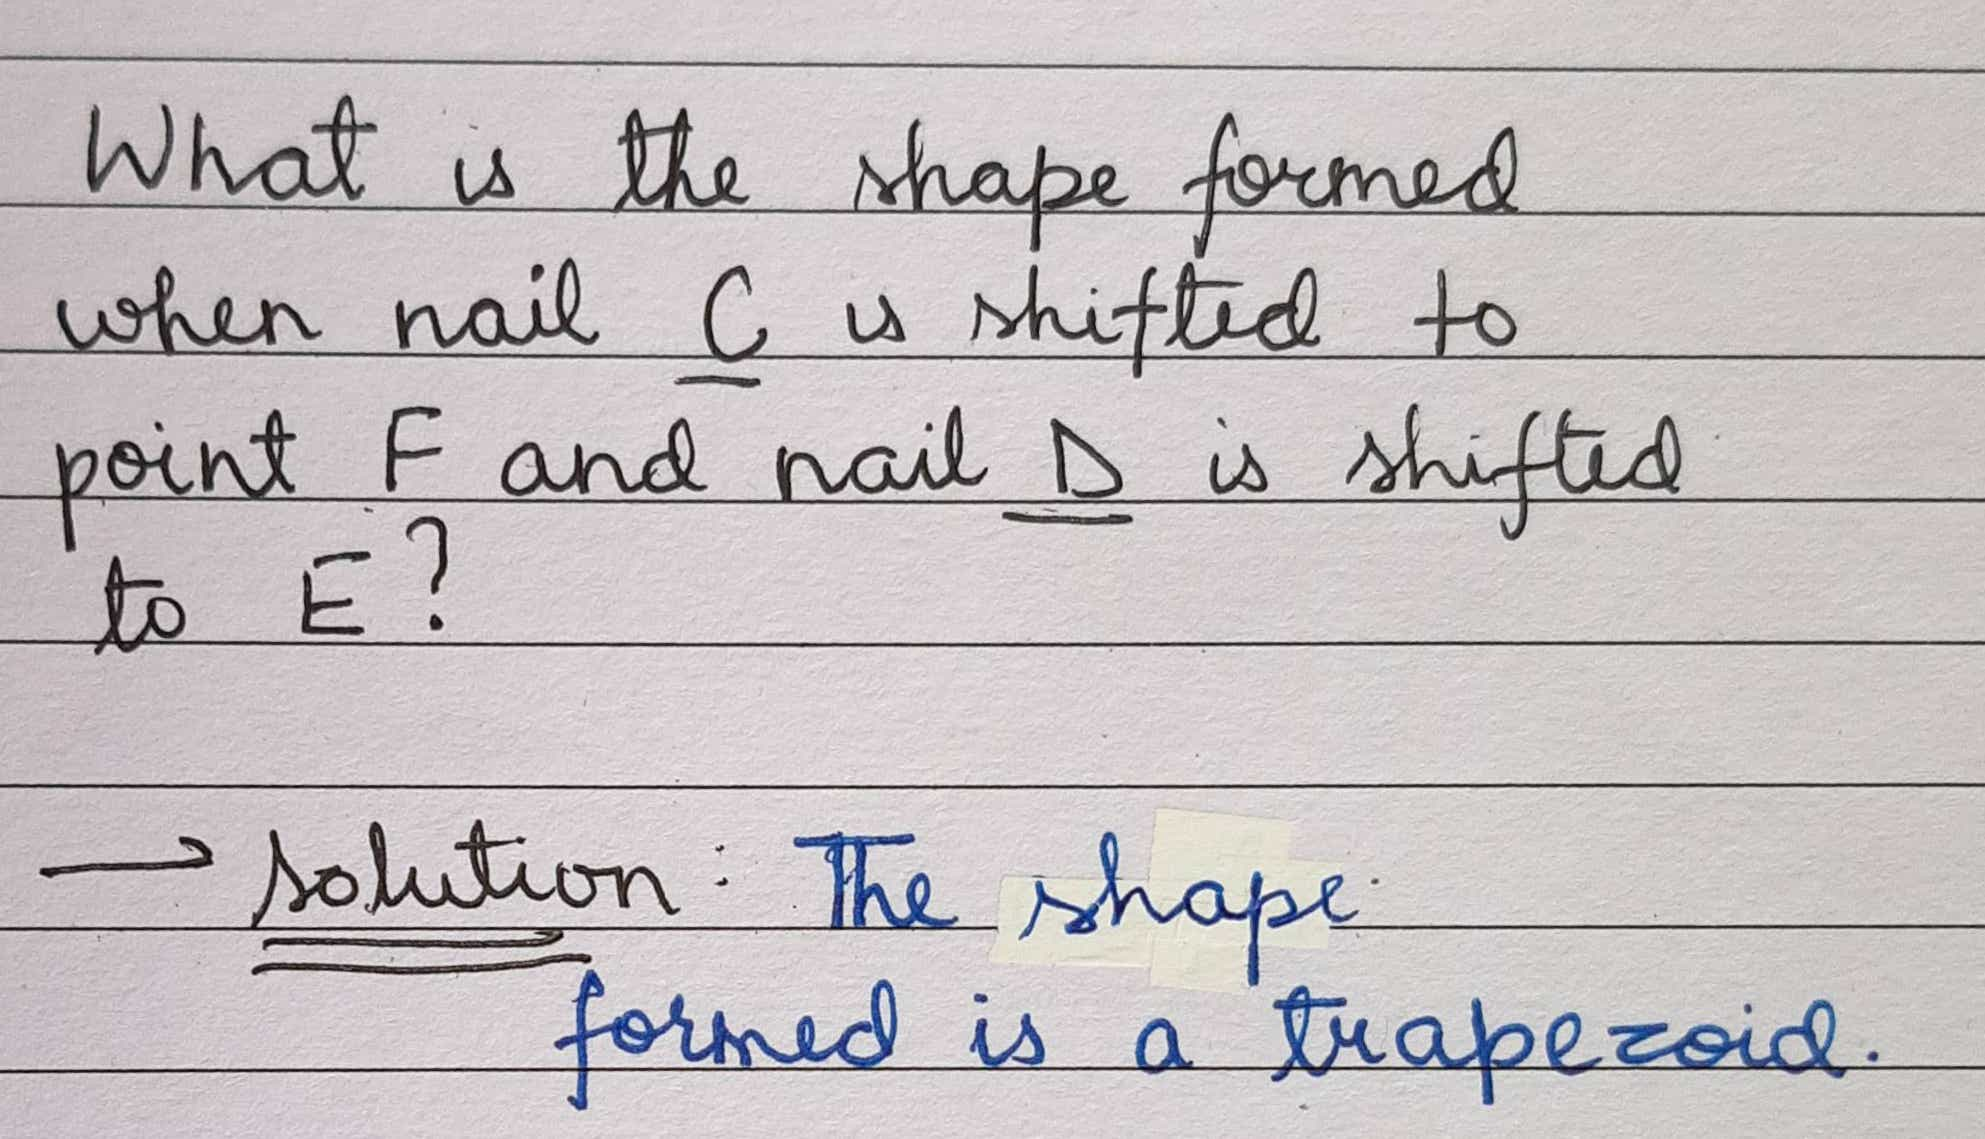 What is the shape formed
when nail C is shifted to
point F and nail D is shifted
to E?
→ solution: The shape
formed is a trapezoid.